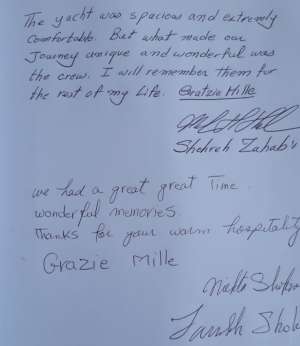 The yacht was spacious and extremely
comfortable. But what made our
Journey unique and wonderful was
the crew. I will remember them for
the rest of my life. Gratzie Mille
Shohreh
we had a great great Time.
wonderful memories.
Thanks for your warm hospitality
Grazie Mille